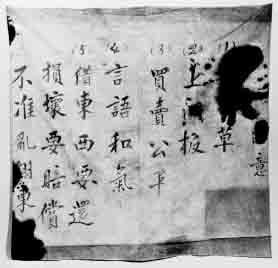 意
(1) 草
(2) 上门板
(3) 買賣公平
(4) 言語和氣
(5) 借東西要還
損壞要賠償
不准乱 東